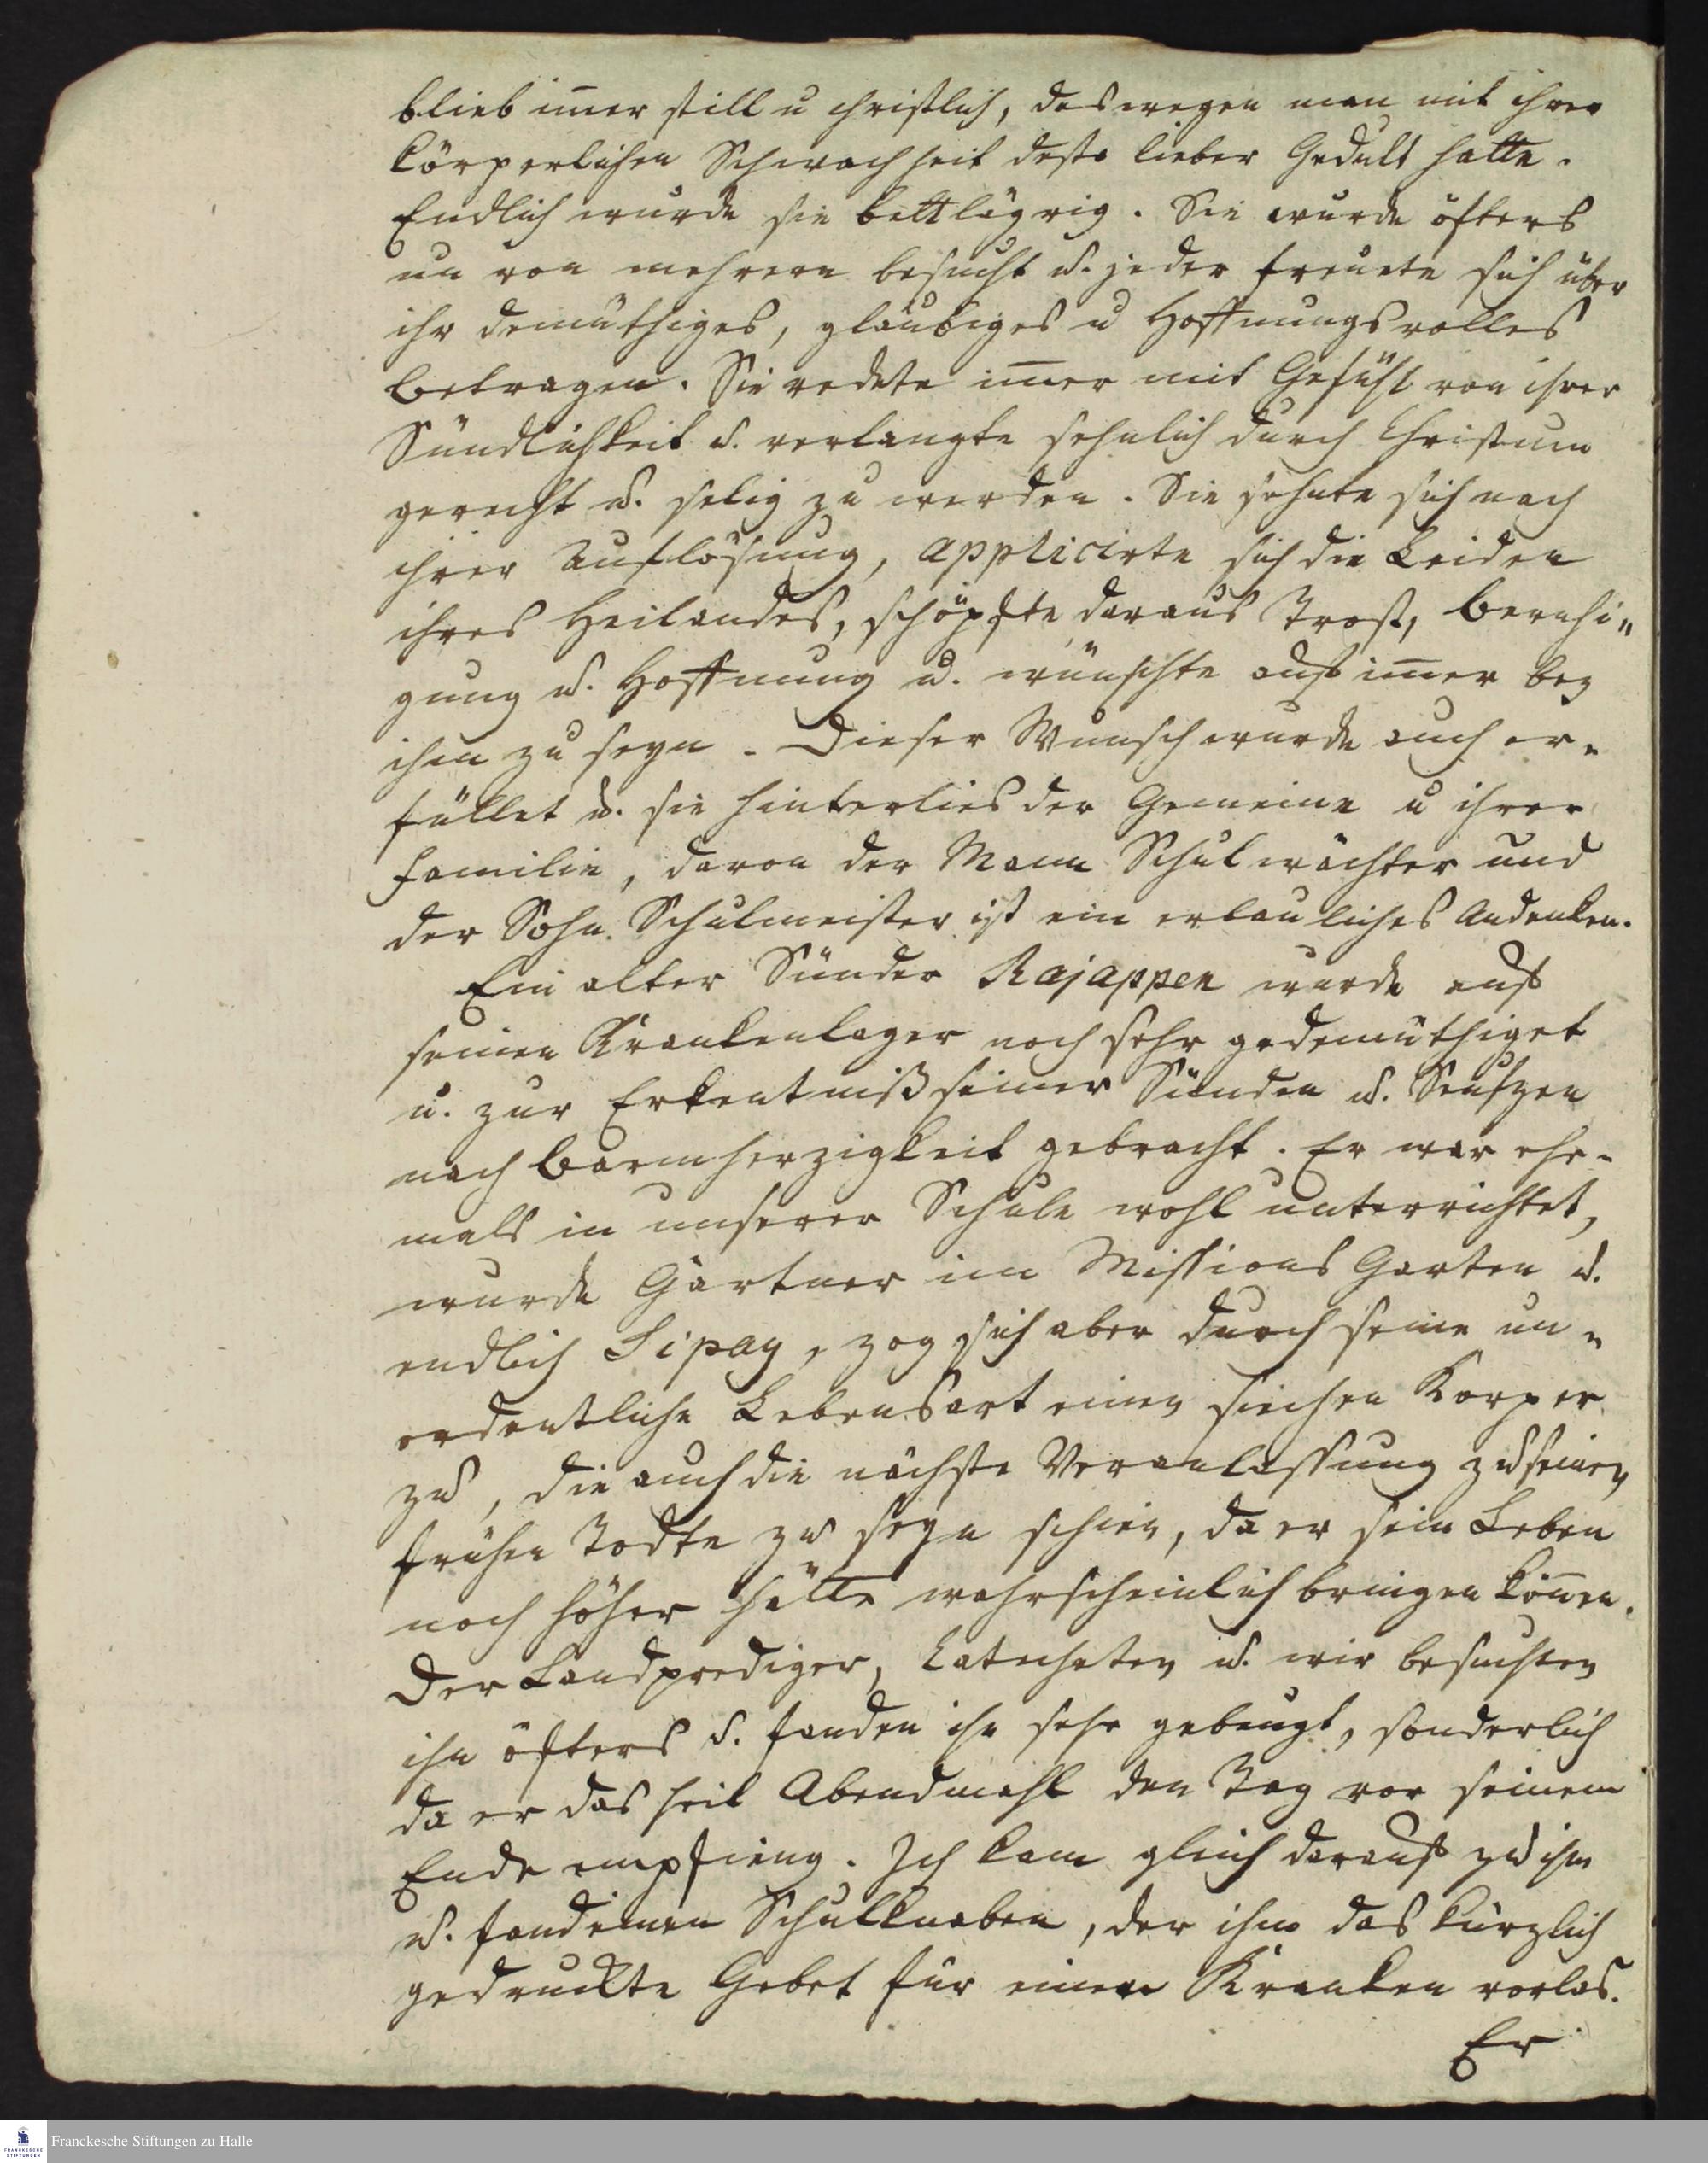 blieb im̄er still u christlich, deswegen man mit ihrer
körperlichen Schwachheit desto lieber Gedult hatte.
Endlich wurde sie bettlägrig. Sie wurde öfters
un von mehrern besucht u. jeder freuete sich über
ihr demüthiges, gläubiges u Hoffnungsvolles
Betragen. Sie redete im̄er mit Gefühl von ihrer
Sündlichkeit u. verlangte sehnlich durch Christum
gerecht u. selig zu werden. Sie sehnte sich nach
ihrer Auflösung, applicirte sich die Leiden
ihres Heilandes, schöpfte daraus Trost, Beruhi„
gung u. Hoffnung u. wünschte auf im̄er bey
ihm zu seyn. Dieser Wunsch wurde auch er-
füllet u. sie hinterlies der Gemeine u ihrer
Familie, davon der Mann Schulwächter und
der Sohn Schulmeister ist ein erbauliches Andenken.
Ein alter Sünder Rajappen wurde auf
seinen Krankenlager noch sehr gedemüthiget
u. zur Erkentniß seiner Sünden u. Seufzen
nach Barmherzigkeit gebracht. Er war ehe-
mals in unserer Schule wohl unterrichtet,
wurde Gärtner im Missions Garten u.
endlich Sipay, zog sich aber durch seine un-
ordentliche Lebensart einen siechen Korper
zu, die auch die nächste Veranlassung zu seinen
frühen Todte zu seyn schien, da er sein Leben
noch höher hätte wahrscheinlich bringen kön̄en.
Der Landprediger, Catecheten u. wir besuchten
ihn öfters u. fanden ihn sehr gebeugt, sonderlich
da er das heil Abendmahl den Tag vor seinem
Ende empfieng. Ich kam gleich darauf zu ihm
u. fand einen Schulknaben, der ihm das kürzlich
gedruckte Gebet für einen Kranken vorlas.
Er
Franckesche Stiftungen zu Halle
FRANCKESCHE
STIFTUNGEN